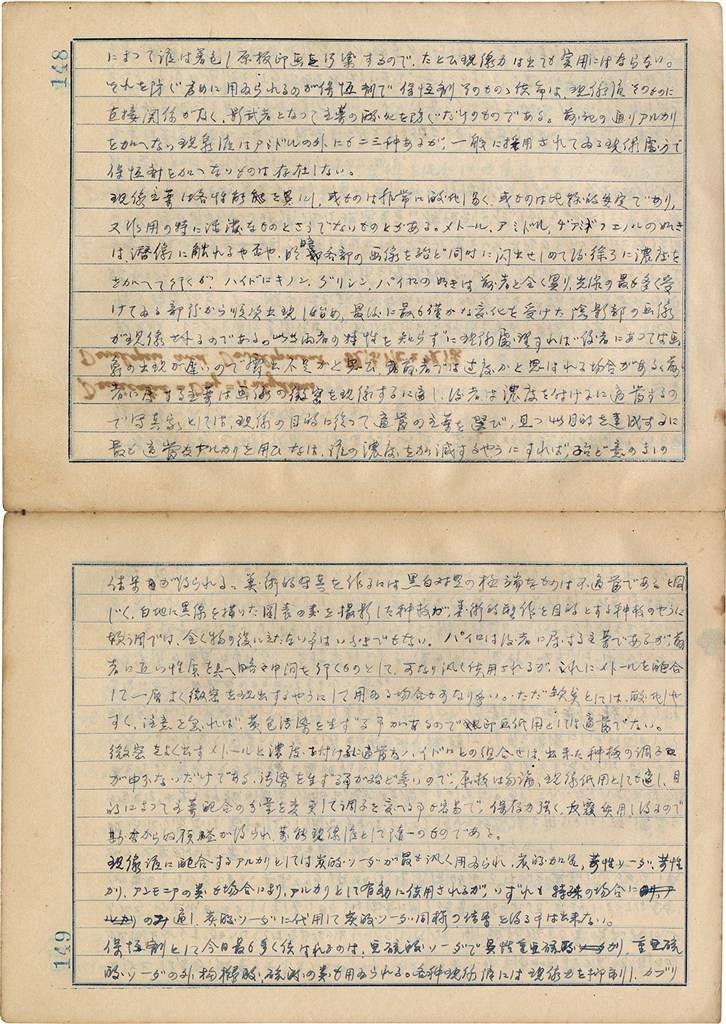 148
によつて液は着色し原板印画を汚染するので、たとひ現像力は出ても実用にはならない。
それを防ぐ為めに用ゐられるのが保恒剤で保恒剤そのものゝ使命は、現像液そのものに
直接関係がなく、影武者となつて主薬の酸化を防ぐだけのものである。前記の通りアルカリ
を加へない現像液はアミドルの外にも二三種あるが、一般に採用されてゐる現像処方で
保恒剤を加へないものは存在しない。
現像主薬は各性能を異にし、或ものは非常に酸化し易く、或ものは比較的安定であり、
又作用の特に活潑なものとさうでないものとがある。メトール、アミドル、の如き
は、潜像に触れるや否や、明暗各部の画像を殆ど同時に閃出せしめて後徐ろに濃度を
加へて行くが、ハイドロキノン、グリシン、パイロの如きは前者と全く異り、光線の最も多く受
けてゐる部分から順次出現し始め、最後に最も僅かな変化を受けた陰影部の画像
が現像されるのである。此両者の特性を知らずに現像処理すれば、後者にあつては画
像の出現が遅いので露出不足かと思ひ、前者では過度かと思はれる場合がある。前
者に属する主薬は画像の微密を現像するに適し、後者は濃度を付けるに適当するの
で写真家としては、現像の目的に従つて適当の主薬を選び、且つ此目的を達成するに
最も適当なアルカリを用ひ、液の濃度を加減するやうにすれば、殆ど意のまゝの
結果が得られる。美術的写真を作るには黒白対照の極端なものは不適当であると同
じく、白地に黒線を描いた図表の類を撮影した種板が、美術的製作を目的とする種板のやうに
軟調では、全く物の役に立たない事はいふまでもない。パイロは後者に属する主薬であるが、前
者に近い性質を具へ略々中間を行くものとして、可なり汎く使用されるが、これにメトールを配合
して一層よく微密を現出するやうにして用ゐる場合が可なり多い。たゞ欠点としては、酸化しや
すく、注意を怠れば、黄色汚染を生ずる事があるので印画紙用としては適当でない。
微密をよく出すメトールと濃度を付けるに適当なハイドロとの組合せは、出来た種板の調子
が申分ないだけである、汚染を生ずる事が殆ど無いので、原板は勿論、現像紙用としても適し、目
的によつて主薬配合の分量を変更して調子を変へる事が容易で、保存力強く、反覆使用し得るので
斯界から信頼が得られ、万能現像液として唯一のものである。
現像液に配合するアルカリとしては炭酸ソーダが最も汎く用ゐられ、炭酸加里、苛性ソーダ、苛性
カリ、アンモニアの類も場合により、アルカリとして有効に使用されるが、いずれも特殊の場合に
のみ適し、炭酸ソーダに代用して炭酸ソーダ同様の結果を得る事は出来ない。
保恒剤として今日最も多く使はれるのは、亜硫酸ソーダで異性重亜硫酸カリ、重亜硫
酸ソーダの外、枸櫞酸、硫酸の類も用ゐられる。各種の現像液には現像力を抑制し、カブリ
149